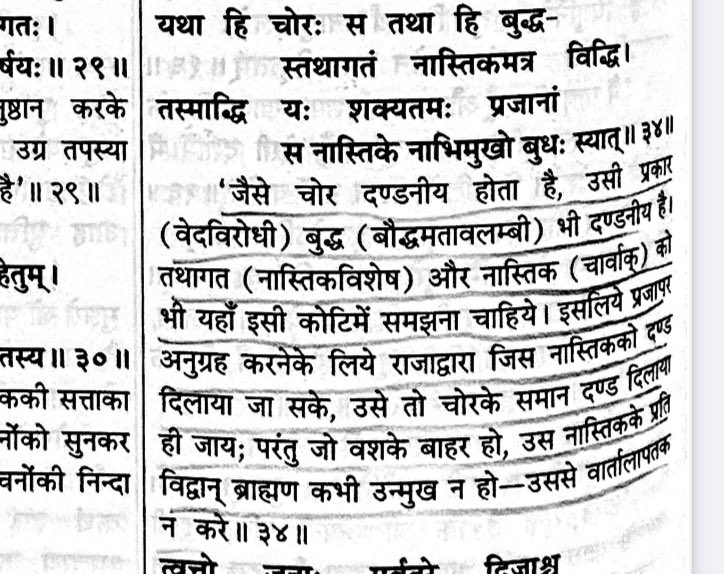 गतः।
र्षयः॥ २९॥
नुष्ठान करके
उग्र तपस्या
है'॥ २९॥
हेतुम्।
तस्य॥ ३०॥
ककी सत्ताका
नोंको सुनकर
वनोंकी निन्दा
यथा हि चोरः स तथा हि बुद्ध-
स्तथागतं नास्तिकमत्र विद्धि।
तस्माद्धि यः शक्यतमः प्रजानां
स नास्तिके नाभिमुखो बुधः स्यात्॥ ३४॥
'जैसे चोर दण्डनीय होता है, उसी प्रकार
(वेदविरोधी) बुद्ध (बौद्धमतावलम्बी) भी दण्डनीय है।
तथागत (नास्तिकविशेष) और नास्तिक (चार्वाक्) को
भी यहाँ इसी कोटिमें समझना चाहिये। इसलिये प्रजापर
अनुग्रह करनेके लिये राजाद्वारा जिस नास्तिकको दण्ड
दिलाया जा सके, उसे तो चोरके समान दण्ड दिलाया
ही जाय; परंतु जो वशके बाहर हो, उस नास्तिकके प्रति
विद्वान् ब्राह्मण कभी उन्मुख न हो—उससे वार्तालापतक
न करे॥ ३४॥